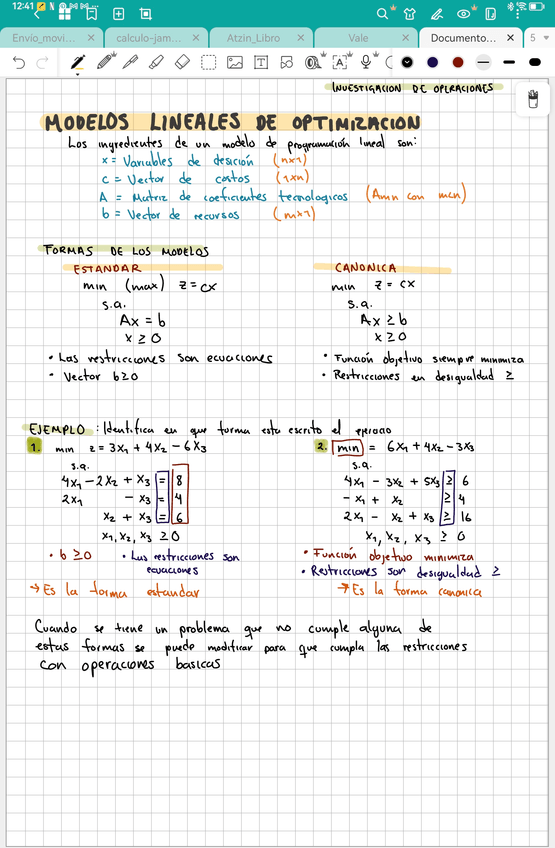 12:41
Envio_movi...
calculo-jam...
Atzin_Libro
Vale
Documento...
5
INVESTIGACION DE OPERACIONES
MODELOS LINEALES DE OPTIMIZACION
Los ingredientes de un modelo de programación lineal son:
x = Variables de desición (nx1)
c = Vector de costos (1xn)
A = Matriz de coeficientes tecnologicos (Amn con m<n)
b = Vector de recursos (mx1)
FORMAS DE LOS MODELOS
ESTANDAR
min (max) z = cx
s.a.
Ax = b
x ≥ 0
• Las restricciones son ecuaciones
• Vector b≥0
CANONICA
min z = cx
s.a.
Ax ≥ b
x ≥ 0
• Función objetivo siempre minimiza
• Restricciones en desigualdad ≥
EJEMPLO : Identifica en que forma esta escrito el ejercicio
1. min z = 3x₁ + 4x₂ - 6x₃
s.a.
4x₁ - 2x₂ + x₃ = 8
2x₁ - x₃ = 4
x₂ + x₃ = 6
x₁, x₂, x₃ ≥ 0
• b ≥ 0 • Las restricciones son
ecuaciones
→ Es la forma estandar
2. min = 6x₁ + 4x₂ - 3x₃
s.a.
4x₁ - 3x₂ + 5x₃ ≥ 6
- x₁ + x₂ ≥ 4
2x₁ - x₂ + x₃ ≥ 16
x₁, x₂, x₃ ≥ 0
• Función objetivo minimiza
• Restricciones son desigualdad ≥
→ Es la forma canonica
Cuando se tiene un problema que no cumple alguna de
estas formas se puede modificar para que cumpla las restricciones
con operaciones basicas